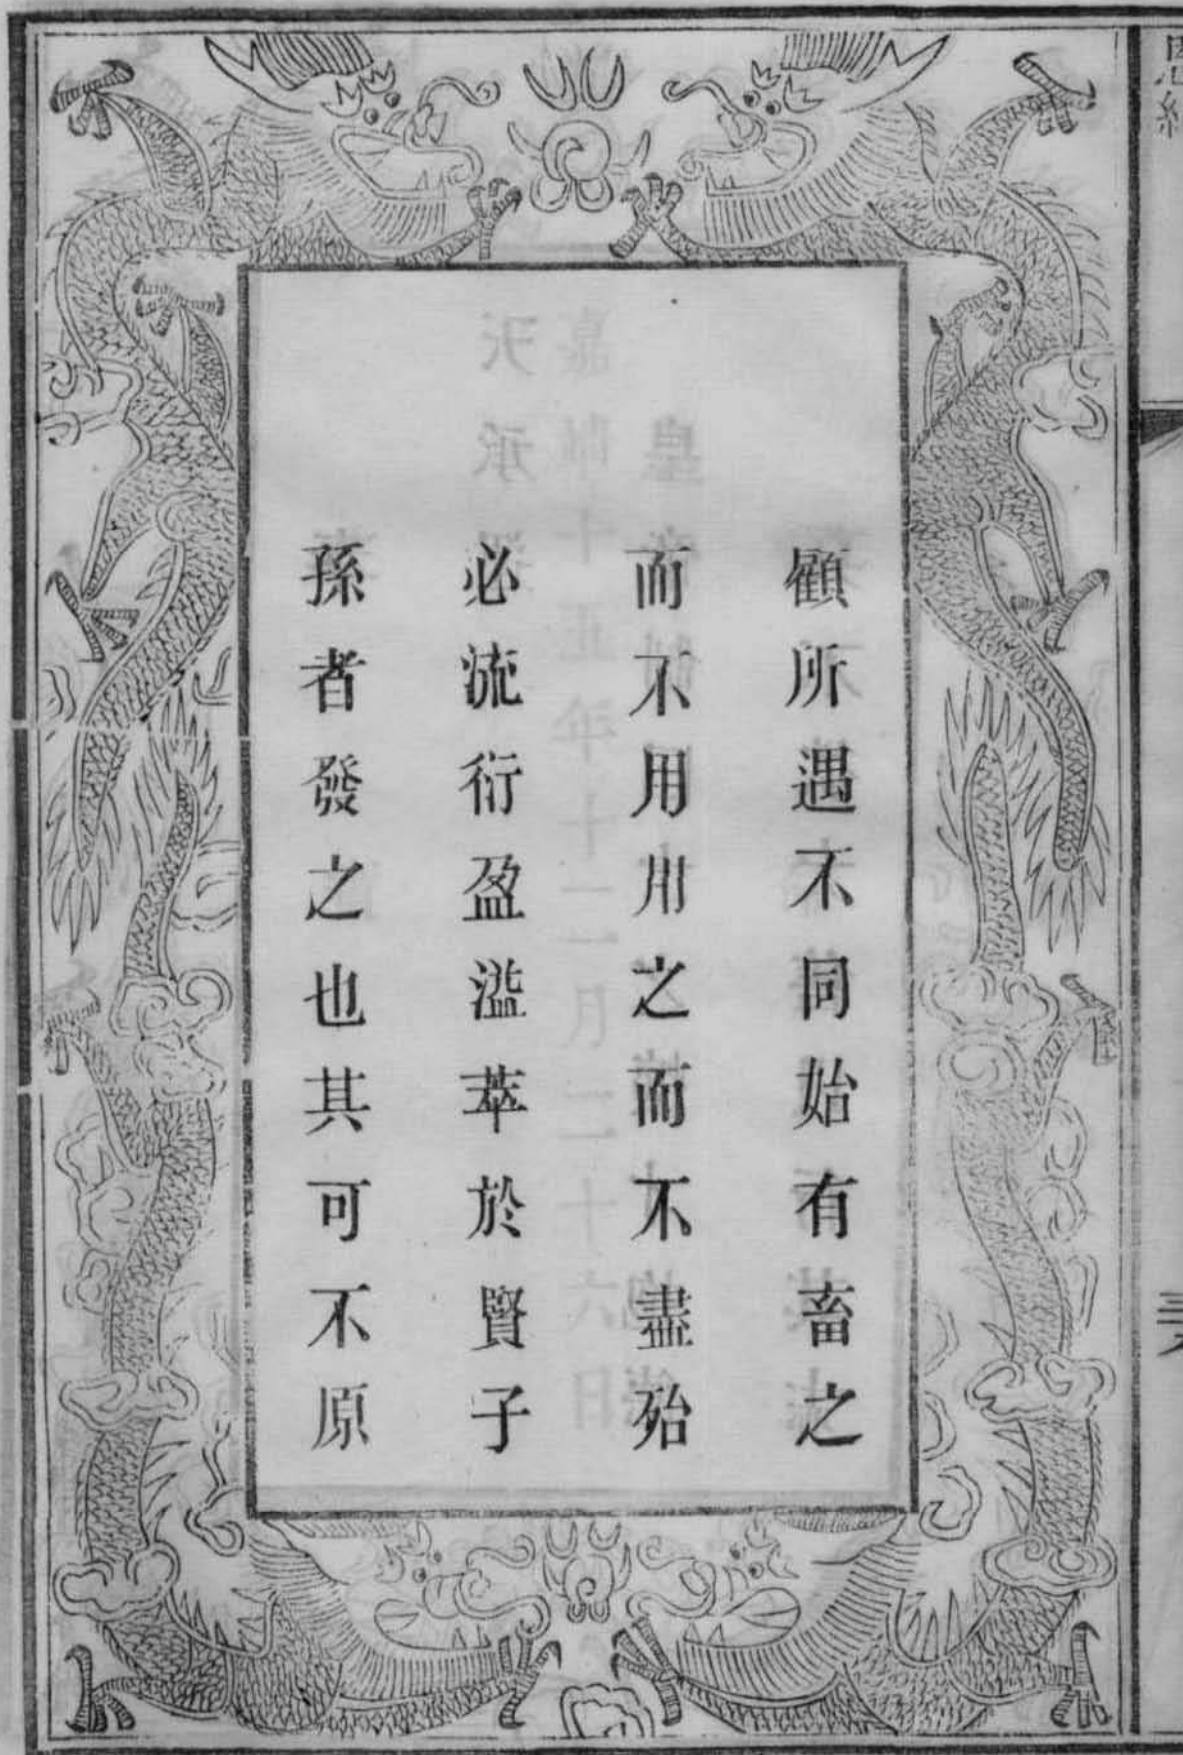 恩綸
顧所遇不同始有畜之
而不用用之而不盡殆
必流衍盈溢萃於賢子
孫者發之也其可不原